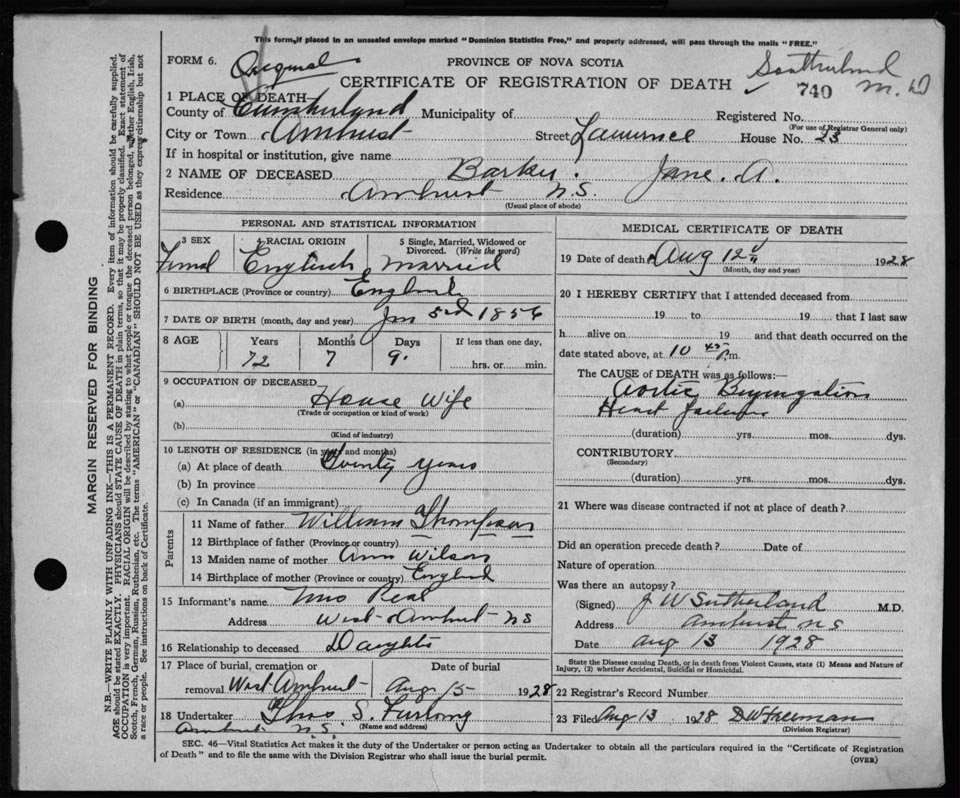 This form, if placed in an unsealed envelope marked "Dominion Statistics Free," and properly addressed, will pass through the mails "FREE."
FORM 6. Original PROVINCE OF NOVA SCOTIA
CERTIFICATE OF REGISTRATION OF DEATH Sutherland M.D
740
1 PLACE OF DEATH
County of Cumberland Municipality of Registered No.
(For use of Registrar General only)
City or Town Amherst Street Lawrence House No. 23
If in hospital or institution, give name
2 NAME OF DECEASED Barker. Jane. A.
Residence Amherst N.S.
(Usual place of abode)
PERSONAL AND STATISTICAL INFORMATION
3 SEX 4 RACIAL ORIGIN 5 Single, Married, Widowed or Divorced. (Write the word)
Femal English Married
6 BIRTHPLACE (Province or country) England
7 DATE OF BIRTH (month, day and year) Jan 3rd 1856
8 AGE Years Months Days If less than one day,
72 7 9. hrs. or min.
9 OCCUPATION OF DECEASED
(a) House Wife
(Trade or occupation or kind of work)
(b)
(Kind of industry)
10 LENGTH OF RESIDENCE (in years and months)
(a) At place of death Twenty years
(b) In province
(c) In Canada (if an immigrant)
Parents
11 Name of father William Thompson
12 Birthplace of father (Province or country)
13 Maiden name of mother Ann Wilson
14 Birthplace of mother (Province or country) England
15 Informant's name Mrs
Address West Amherst NS
16 Relationship to deceased Daughter
17 Place of burial, cremation or removal West Amherst
Date of burial Aug 15 1928
18 Undertaker Thos S. Furlong
(Name and address)
Amherst N.S.
MEDICAL CERTIFICATE OF DEATH
19 Date of death Aug 12 1928
(Month, day and year)
20 I HEREBY CERTIFY that I attended deceased from
19 to 19 that I last saw
h alive on 19 and that death occurred on the
date stated above, at 10 45 P.m.
The CAUSE of DEATH was as follows:—
Aortic Regurgitation
Heart Failure
(duration) yrs. mos. dys.
CONTRIBUTORY
(Secondary)
(duration) yrs. mos. dys.
21 Where was disease contracted if not at place of death?
Did an operation precede death? Date of
Nature of operation
Was there an autopsy?
(Signed) J W Sutherland M.D.
Address Amherst N S
Date Aug 13 1928
State the Disease causing Death, or in death from Violent Causes, state (1) Means and Nature of Injury, (2) whether Accidental, Suicidal or Homicidal.
22 Registrar's Record Number
23 Filed Aug 13 1928 D W Freeman
(Division Registrar)
SEC. 46—Vital Statistics Act makes it the duty of the Undertaker or person acting as Undertaker to obtain all the particulars required in the "Certificate of Registration
of Death" and to file the same with the Division Registrar who shall issue the burial permit. (OVER)
MARGIN RESERVED FOR BINDING
N.B.—WRITE PLAINLY WITH UNFADING INK—THIS IS A PERMANENT RECORD. Every item of information should be carefully supplied.
AGE should be stated EXACTLY. PHYSICIANS should STATE CAUSE OF DEATH in plain terms, so that it may be properly classified. Exact statement of
OCCUPATION is very important. RACIAL ORIGIN will be described by stating to what people or tongue the deceased person belonged, whether English, Irish,
Scotch, French, German, Russian, Ruthenian, etc. The terms "AMERICAN" or "CANADIAN" SHOULD NOT BE USED as they express citizenship but not
a race or people. See instructions on back of Certificate.